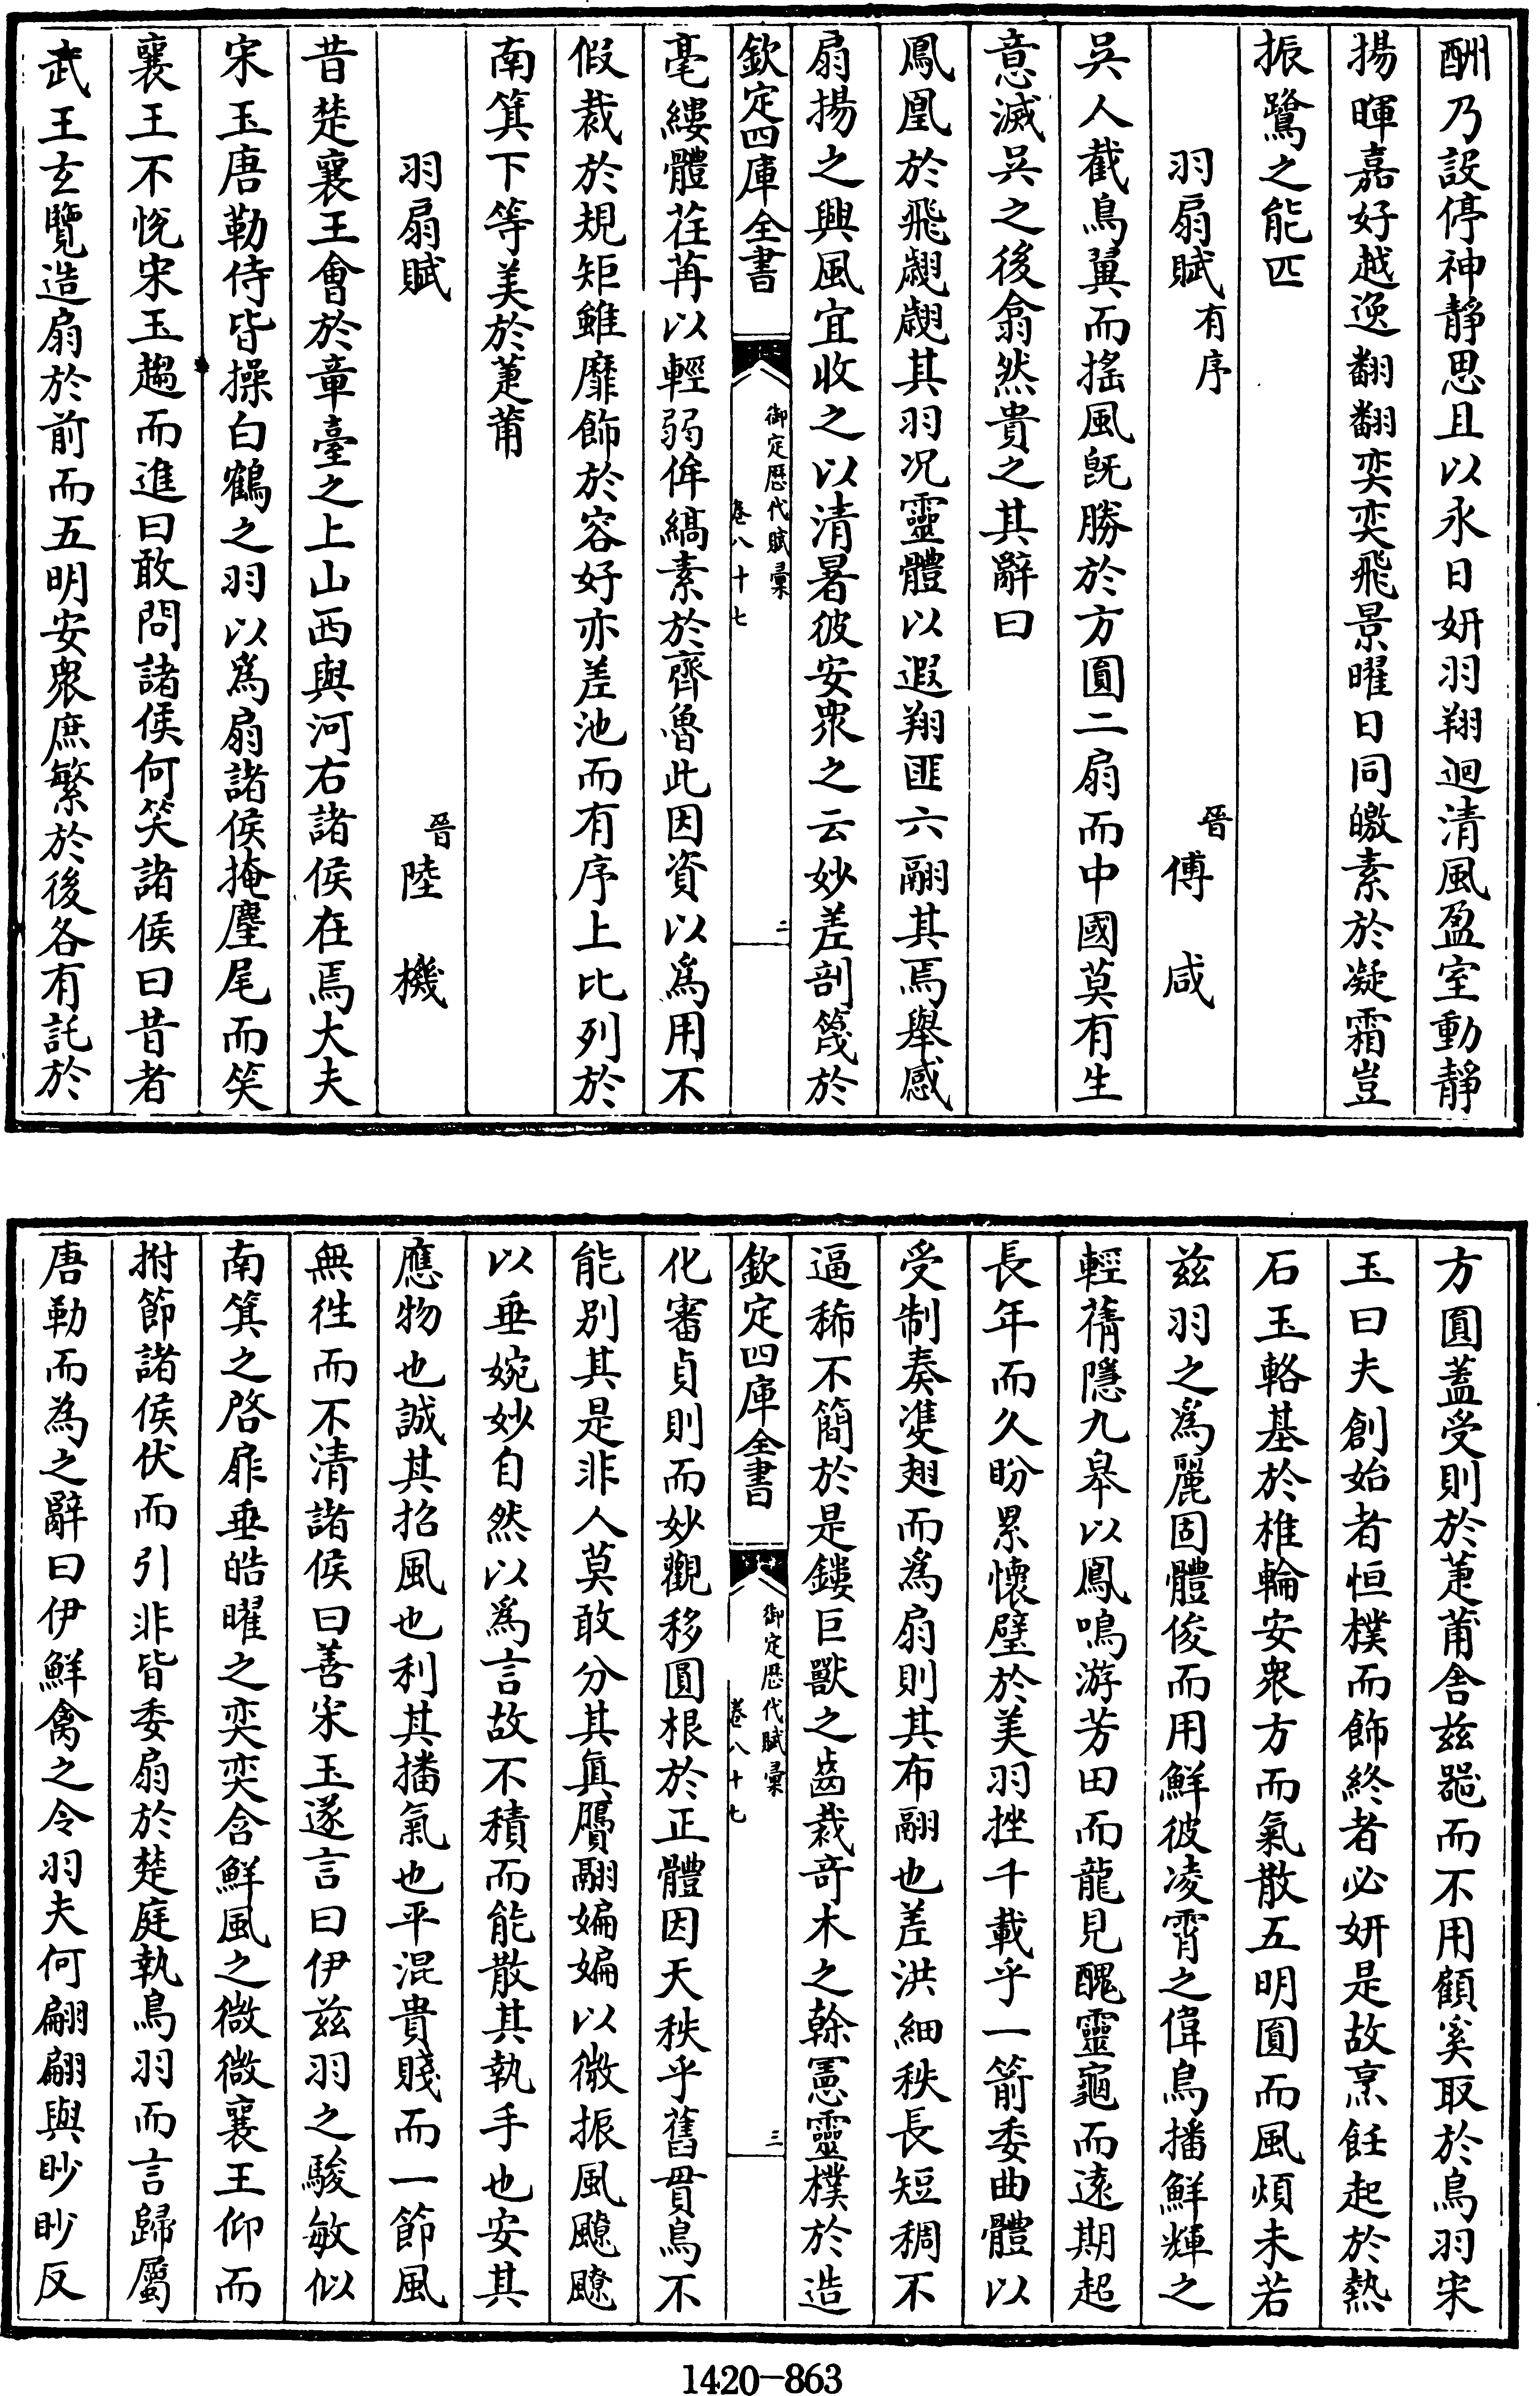 酬乃設停神靜思且以永日妍羽翔迴清風盈室動靜
揚暉嘉好越逸翻翻奕奕飛景曜日同皦素於凝霜豈
振鷺之能匹
羽扇賦有序　晉傅咸
吳人截鳥翼而搖風旣勝於方圓二扇而中國莫有生
意滅吳之後翕然貴之其辭曰
鳳凰於飛翽翽其羽况靈體以遐翔匪六翮其焉舉感
扇揚之興風宜收之以清暑彼安衆之云妙差剖篾於
欽定四庫全書　御定歴代賦彙　卷八十七　二
毫縷體荏苒以輕弱侔縞素於齊魯此因資以爲用不
假裁於規矩雖靡飾於容好亦差池而有序上比列於
南箕下等美於萐莆
羽扇賦　晉陸機
昔楚襄王會於章臺之上山西與河右諸侯在焉大夫
宋玉唐勒侍皆操白鶴之羽以爲扇諸侯掩麈尾而笑
襄王不悅宋玉趨而進曰敢問諸侯何笑諸侯曰昔者
武王玄覽造扇於前而五明安衆庶繁於後各有託於
方圓蓋受則於萐莆舍兹器而不用顧奚取於鳥羽宋
玉曰夫創始者恒樸而飾終者必妍是故烹飪起於熱
石玉輅基於椎輪安衆方而氣散五明圓而風煩未若
兹羽之爲麗固體俊而用鮮彼凌霄之偉鳥播鮮輝之
輕蒨隱九皋以鳳鳴游芳田而龍見醜靈龜而遠期超
長年而久盼累懷璧於美羽挫千載乎一箭委曲體以
受制奏雙翅而爲扇則其布翮也差洪細秩長短稠不
逼稀不簡於是鏤巨獸之齒裁奇木之幹憲靈樸於造
欽定四庫全書　御定歴代賦彙　卷八十七　三
化審貞則而妙觀移圓根於正體因天秩乎舊貫鳥不
能別其是非人莫敢分其眞贗翮媥媥以微振風飉飉
以垂婉妙自然以爲言故不積而能散其執手也安其
應物也誠其招風也利其播氣也平混貴賤而一節風
無徃而不清諸侯曰善宋玉遂言曰伊兹羽之駿敏似
南箕之啓扉垂皓曜之奕奕含鮮風之微微襄王仰而
拊節諸侯伏而引非皆委扇於楚庭執鳥羽而言歸屬
唐勒而為之辭曰伊鮮禽之令羽夫何翩翩與眇眇反
1420-863